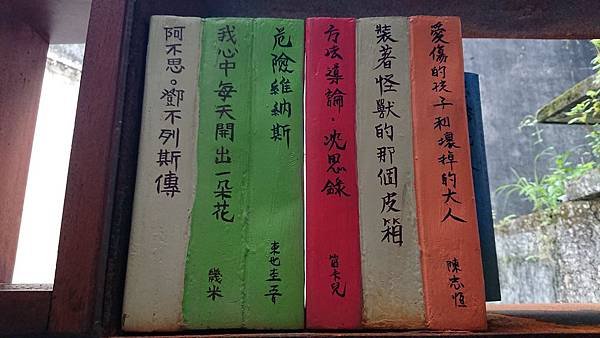 阿不思。鄧不列斯傳
我心中每天開出一朵花
幾米
危險維納斯
東也圭吾
方法導論.沈思錄
笛卡兒
裝著怪獸的那個皮箱
愛傷的孩子和壞掉的大人
陳志恆